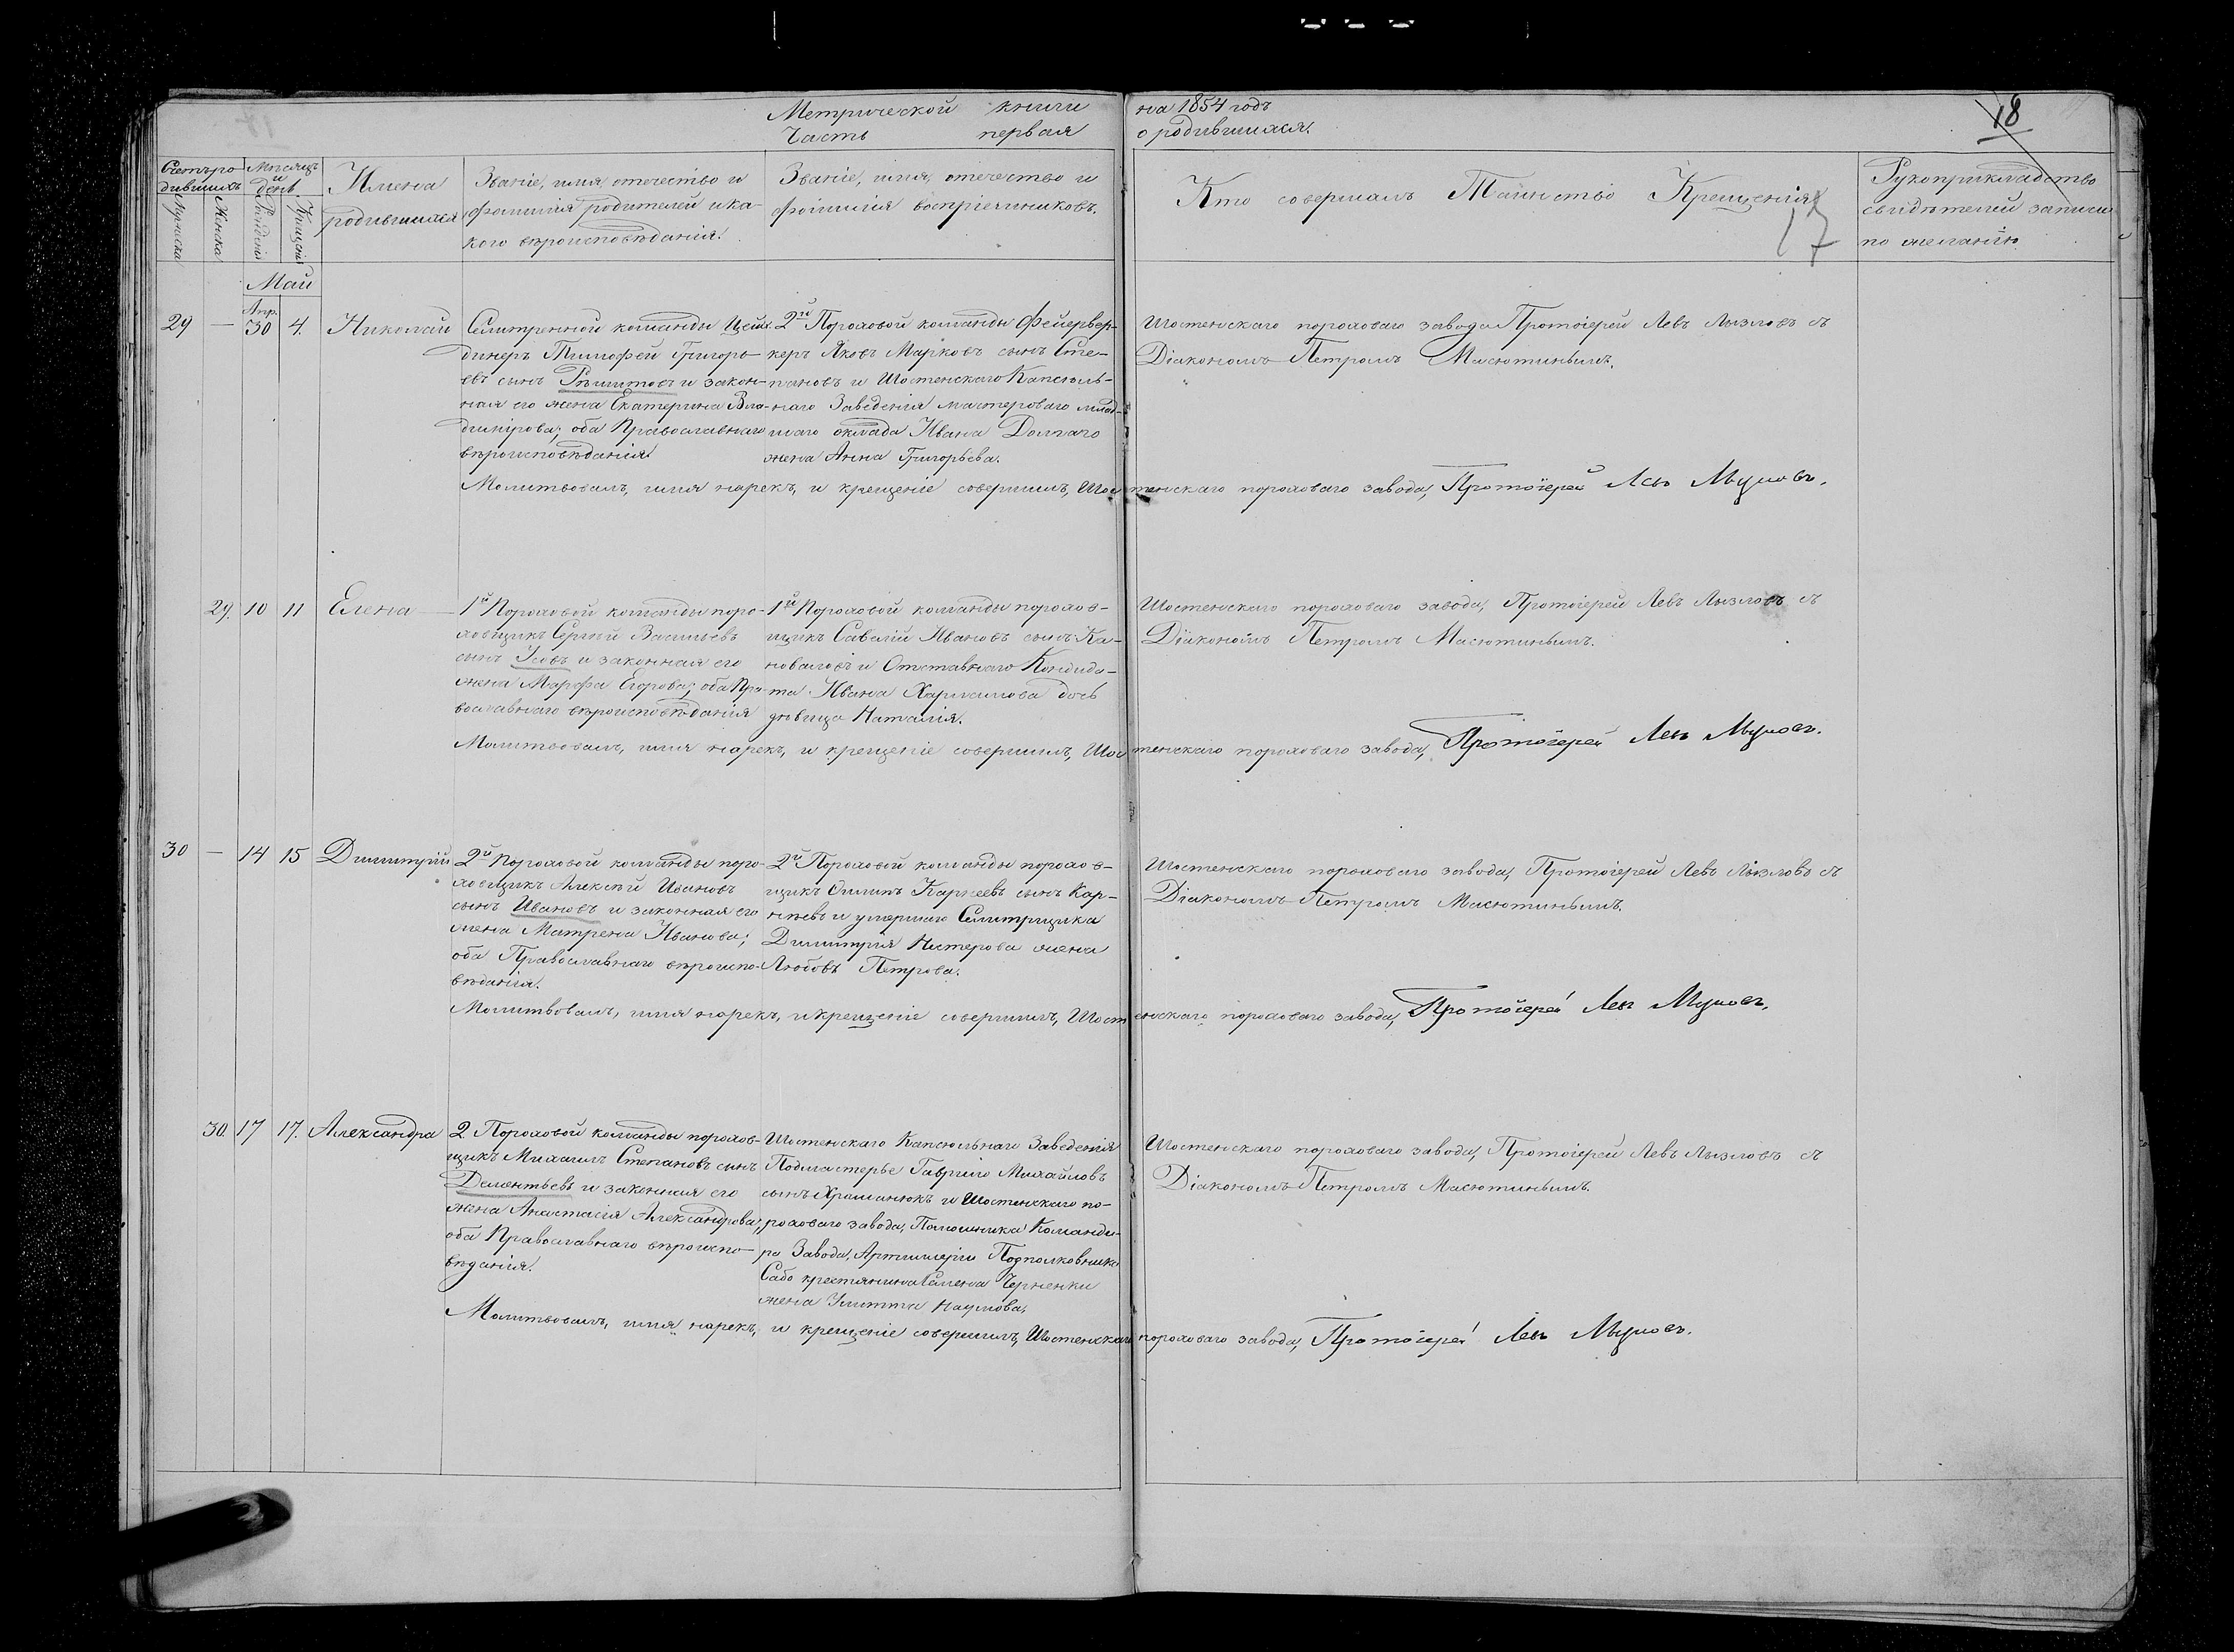 Метрической книги на 1854 годъ
Часть первая о родившихся.
18
Счетъ ро-
дившихъ
Мужеска
Женска
Мѣсяцъ
и
день
Рожденія
Крещенія
Имена
родившихся
Званіе, имя, отечество и
фамилія родителей и ка-
кого вѣроисповѣданія.
Званіе, имя, отечество и
фамилія воспріемниковъ.
Кто совершалъ Таинство Крещенія
17
Рукоприкладство
свидѣтелей записи
по желанію.
Май
29 — Апр. 30 4. Николай
Селитренной команды Цейг-
динеръ Тимофей Григорь-
евъ сынъ Рѣшитовъ и закон-
ная его жена Екатерина Вла-
димірова; оба Православнаго
вѣроисповѣданія.
2й Пороховой команды Фейервер-
керъ Яковъ Марковъ сынъ Сте-
пановъ и Шостенскаго Капсюль-
наго Заведенія мастероваго млад-
шаго оклада Ивана Долгаго
жена Анна Григорьева.
Шостенскаго пороховаго завода Протоіерей Левъ Лызловъ съ
Діакономъ Петромъ Масютинымъ.
Молитвовалъ, имя нарекъ, и крещеніе совершилъ, Шостенскаго пороховаго завода, Протоіерей Левъ Лызловъ.
29. 10 11 Елена
1й Пороховой команды поро-
ховщикъ Сергѣй Васильевъ
сынъ Усовъ и законная его
жена Марфа Егорова; оба Пра-
вославнаго вѣроисповѣданія
1й Пороховой команды порохов-
щикъ Савелій Ивановъ сынъ Ка-
новаловъ и Отставнаго Кондида-
та Ивана Харламова дочь
дѣвица Наталія.
Шостенскаго пороховаго завода, Протоіерей Левъ Лызловъ съ
Діакономъ Петромъ Масютинымъ.
Молитвовалъ, имя нарекъ, и крещеніе совершилъ, Шостенскаго пороховаго завода, Протоіерей Левъ Лызловъ.
30 — 14 15 Димитрій
2й Пороховой команды поро-
ховщикъ Алексѣй Ивановъ
сынъ Ивановъ и законная его
жена Матрена Иванова;
оба Православнаго вѣроиспо-
вѣданія.
2й Пороховой команды порохов-
щикъ Осипъ Карнеевъ сынъ Кар-
нѣевъ и умершаго Селитрщика
Димитрія Нестерова жена
Любовь Петрова.
Шостенскаго пороховаго завода, Протоіерей Левъ Лызловъ съ
Діакономъ Петромъ Масютинымъ.
Молитвовалъ, имя нарекъ, и крещеніе совершилъ, Шостенскаго пороховаго завода, Протоіерей Левъ Лызловъ.
30. 17 17. Александра
2 Пороховой команды порохов-
щикъ Михаилъ Степановъ сынъ
Дементьевъ и законная его
жена Анастасія Александрова;
оба Православнаго вѣроиспо-
вѣданія.
Шостенскаго Капсюльнаго Заведенія
Подмастерье Гаврило Михайловъ
сынъ Храманюкъ и Шостенскаго по-
роховаго завода, Помошника Команди-
ра Завода, Артиллеріи Подполковника
Сабо крестянина Семена Черненки
жена Улитта Наумова.
Шостенскаго пороховаго завода, Протоіерей Левъ Лызловъ съ
Діакономъ Петромъ Масютинымъ.
Молитвовалъ, имя нарекъ, и крещеніе совершилъ, Шостенскаго пороховаго завода, Протоіерей Левъ Лызловъ.